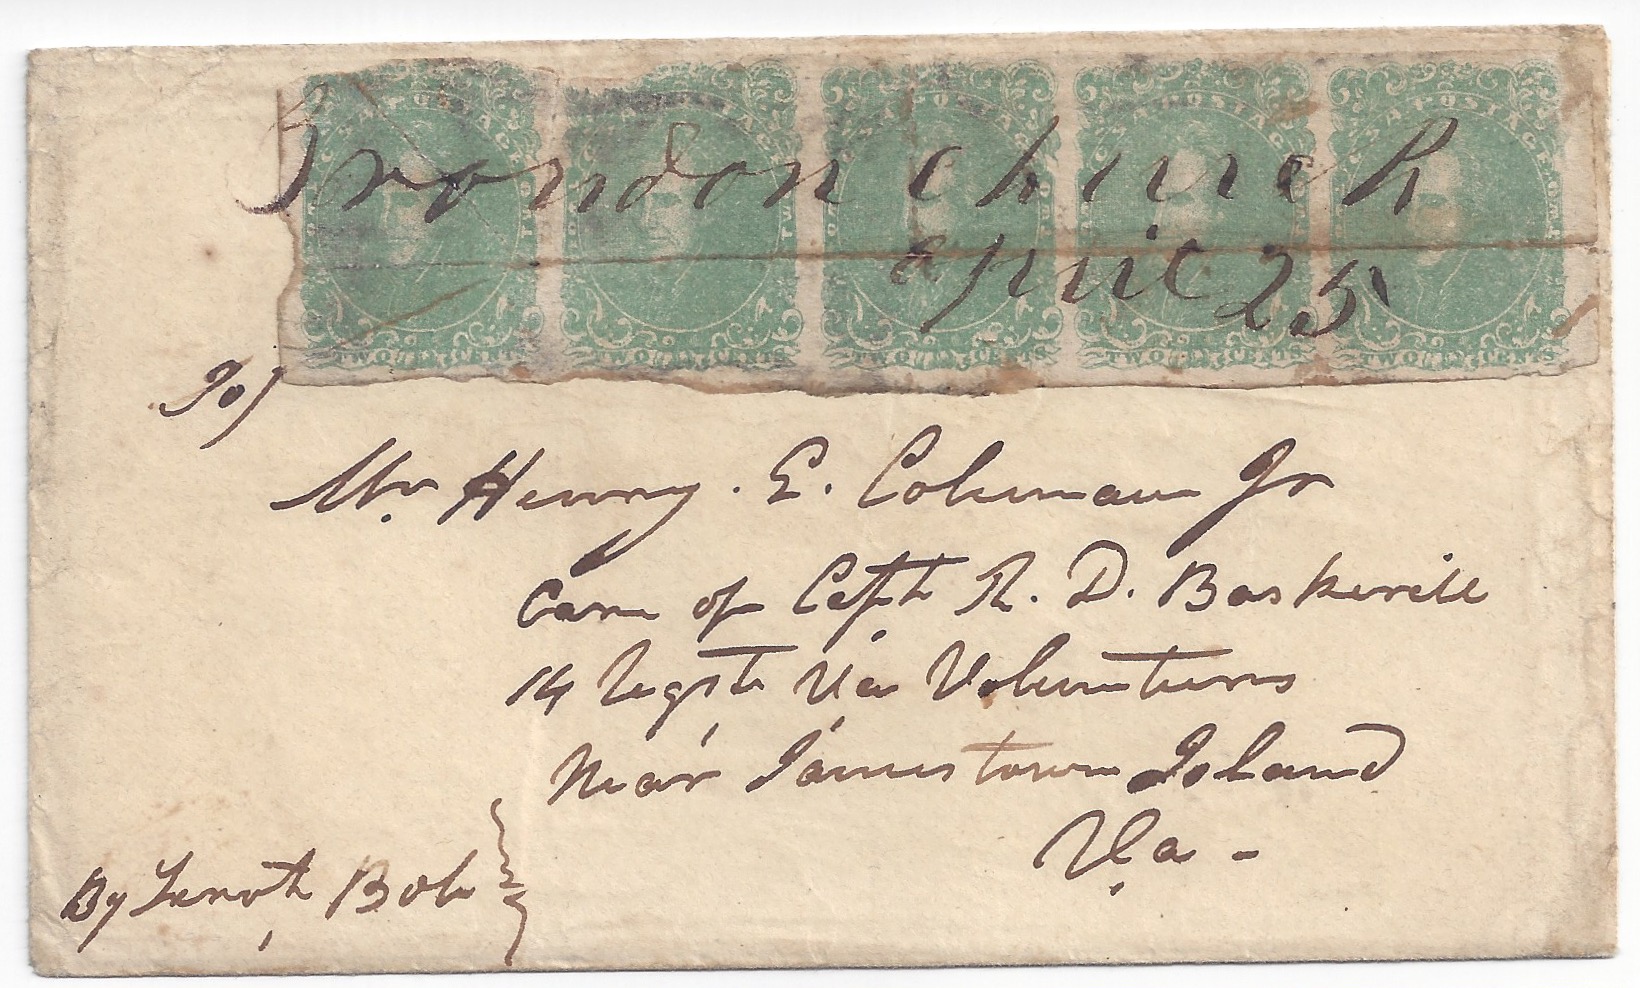 Brandon Church
april 25
C.S.A. POSTAGE TWO CENTS
C.S.A. POSTAGE TWO CENTS
C.S.A. POSTAGE TWO CENTS
C.S.A. POSTAGE TWO CENTS
C.S.A. POSTAGE TWO CENTS
To)
Mr. Henry. E. Coleman Jr
Care of Capt R. D. Baskerill
14 Regt Va Volunteers
Near Jamestown Island
Va -
By Bob